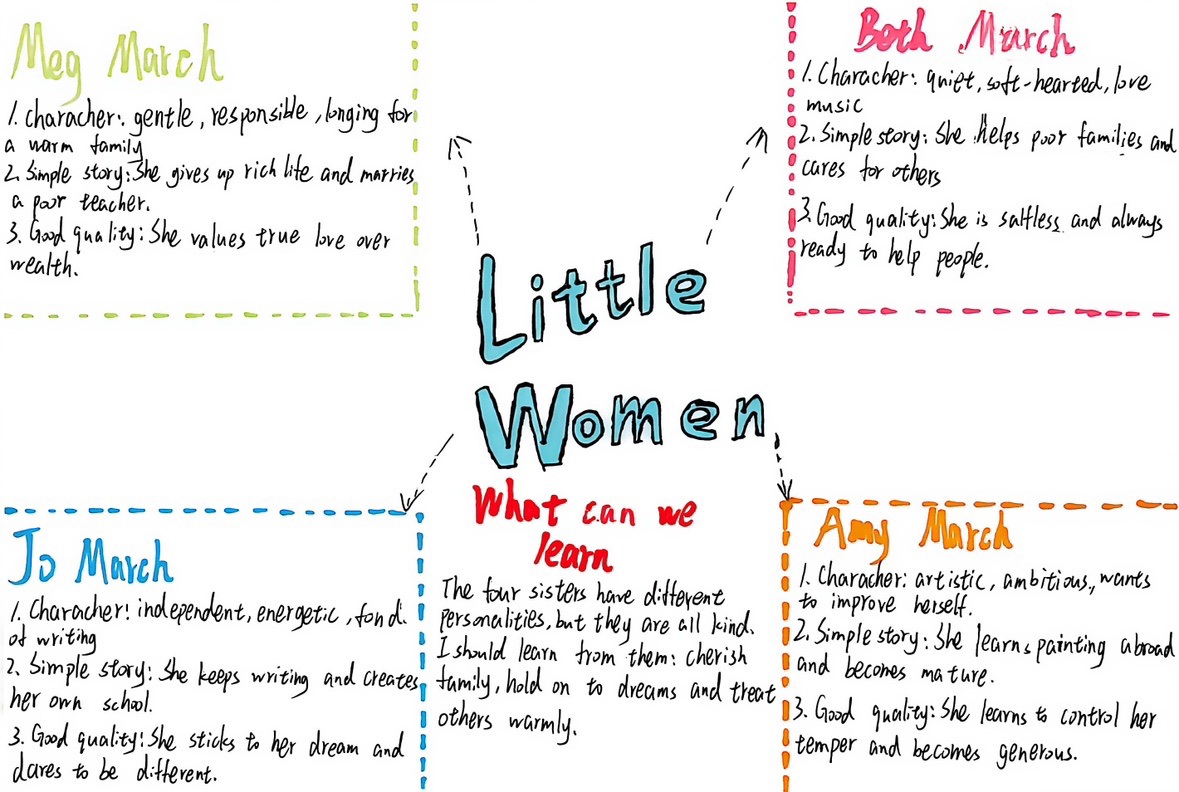 Meg March
1. Characher: gentle, responsible, longing for
a warm family
2. Simple story: She gives up rich life and marries
a poor teacher.
3. Good quality: She values true love over
wealth.
Beth March
1. Characher: quiet, soft-hearted, love
music
2. Simple story: She helps poor families and
cares for others
3. Good quality: She is salfless and always
ready to help people.
Little
Women
What can we
learn
The four sisters have different
personalities, but they are all kind.
I should learn from them: cherish
family, hold on to dreams and treat
others warmly.
Jo March
1. Characher: independent, energetic, fond
of writing
2. Simple story: She keeps writing and creates
her own school.
3. Good quality: She sticks to her dream and
dares to be different.
Amy March
1. Characher: artistic, ambitious, wants
to improve herself.
2. Simple story: She learns painting abroad
and becomes mature.
3. Good quality: She learns to control her
temper and becomes generous.